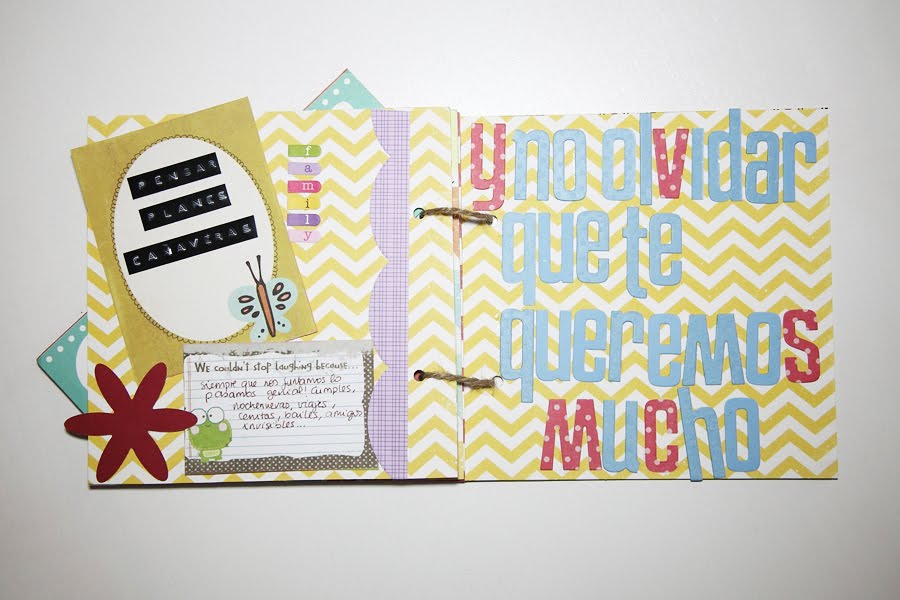 PENSAR
PLANES
CAÑAVERAS
family
WE COULDN'T STOP LAUGHING BECAUSE...
siempre que nos juntamos lo
pasamos genial! Cumples,
nochenuevas, viajes,
cenitas, bailes, amigos
invisibles...
y no olvidar
que te
queremos
Mucho